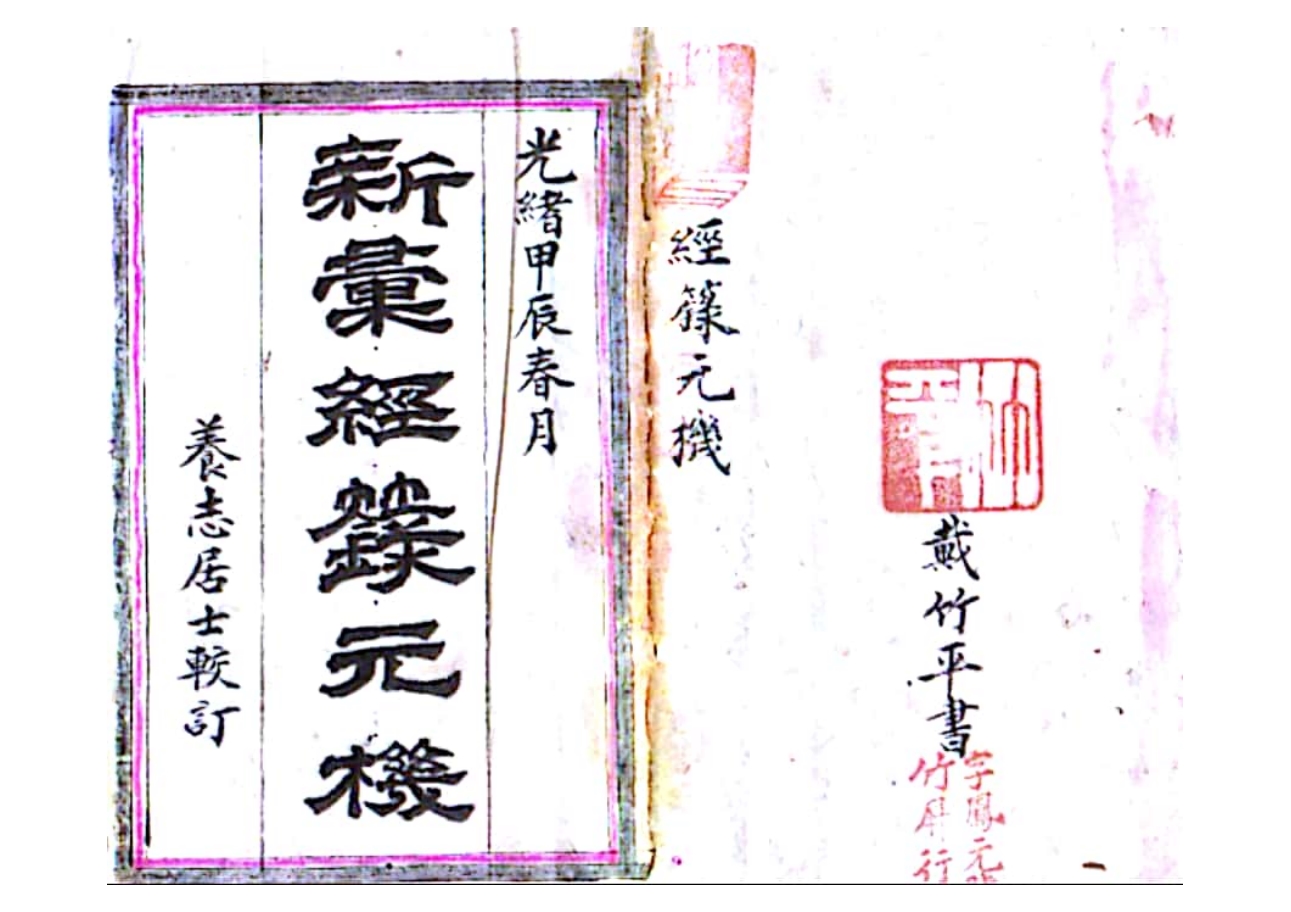 戴竹平書
字鳳元
竹屏行
經箓元機
光緒甲辰春月
新彙經籙元機
養志居士較訂